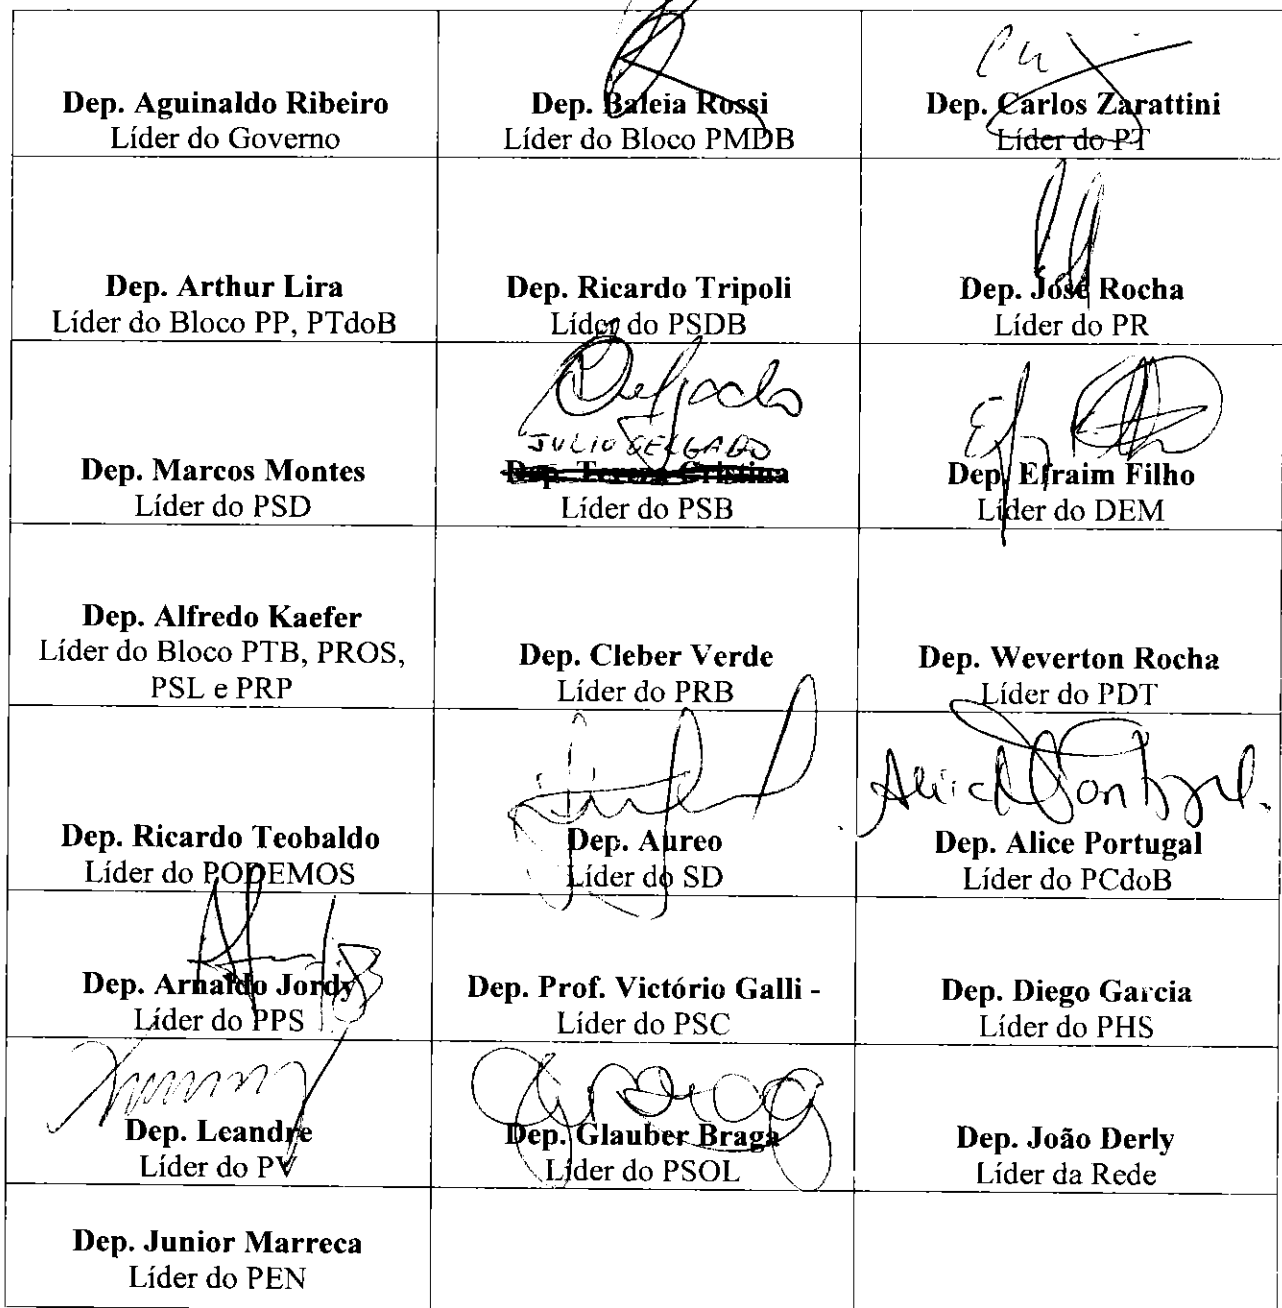 Dep. Aguinaldo Ribeiro
Líder do Governo
Dep. Baleia Rossi
Líder do Bloco PMDB
Dep. Carlos Zarattini
Líder do PT
Dep. Arthur Lira
Líder do Bloco PP, PTdoB
Dep. Ricardo Tripoli
Líder do PSDB
Dep. José Rocha
Líder do PR
Dep. Marcos Montes
Líder do PSD
Delgado
JULIO DELGADO
Dep. Tereza Cristina
Líder do PSB
Dep. Efraim Filho
Líder do DEM
Dep. Alfredo Kaefer
Líder do Bloco PTB, PROS,
PSL e PRP
Dep. Cleber Verde
Líder do PRB
Dep. Weverton Rocha
Líder do PDT
Dep. Ricardo Teobaldo
Líder do PODEMOS
Dep. Aureo
Líder do SD
Alice Portugal
Dep. Alice Portugal
Líder do PCdoB
Dep. Arnaldo Jordy
Líder do PPS
Dep. Prof. Victório Galli -
Líder do PSC
Dep. Diego Garcia
Líder do PHS
Dep. Leandre
Líder do PV
Dep. Glauber Braga
Líder do PSOL
Dep. João Derly
Líder da Rede
Dep. Junior Marreca
Líder do PEN